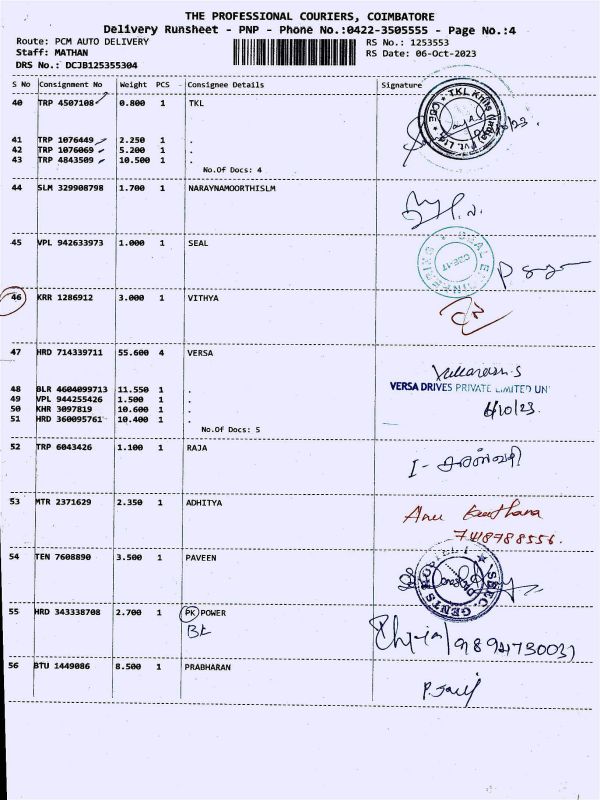 THE PROFESSIONAL COURIERS, COIMBATORE
Delivery Runsheet - PNP - Phone No.:0422-3505555 - Page No.:4
Route: PCM AUTO DELIVERY
RS No.: 1253553
Staff: MATHAN
RS Date: 06-Oct-2023
DRS No.: DCJB125355304
S No Consignment No Weight PCS - Consignee Details Signature
40 TRP 4507108 0.800 1 TKL
41 TRP 1076449 2.250 1 .
42 TRP 1076069 5.200 1 .
43 TRP 4843509 10.500 1 .
No.Of Docs: 4
44 SLM 329908798 1.700 1 NARAYNAMOORTHISLM
45 VPL 942633973 1.000 1 SEAL
46 KRR 1286912 3.000 1 VITHYA
47 HRD 714339711 55.600 4 VERSA
VERSA DRIVES PRIVATE LIMITED UN
6/10/23.
48 BLR 4604099713 11.550 1 .
49 VPL 944255426 1.500 1 .
50 KHR 3097819 10.600 1 .
51 HRD 360095761 10.400 1 .
No.Of Docs: 5
52 TRP 6043426 1.100 1 RAJA
53 MTR 2371629 2.350 1 ADHITYA
Anu Keerthana
7418788556.
54 TEN 7608890 3.500 1 PAVEEN
55 HRD 343338708 2.700 1 PK POWER
56 BTU 1449086 8.500 1 PRABHARAN